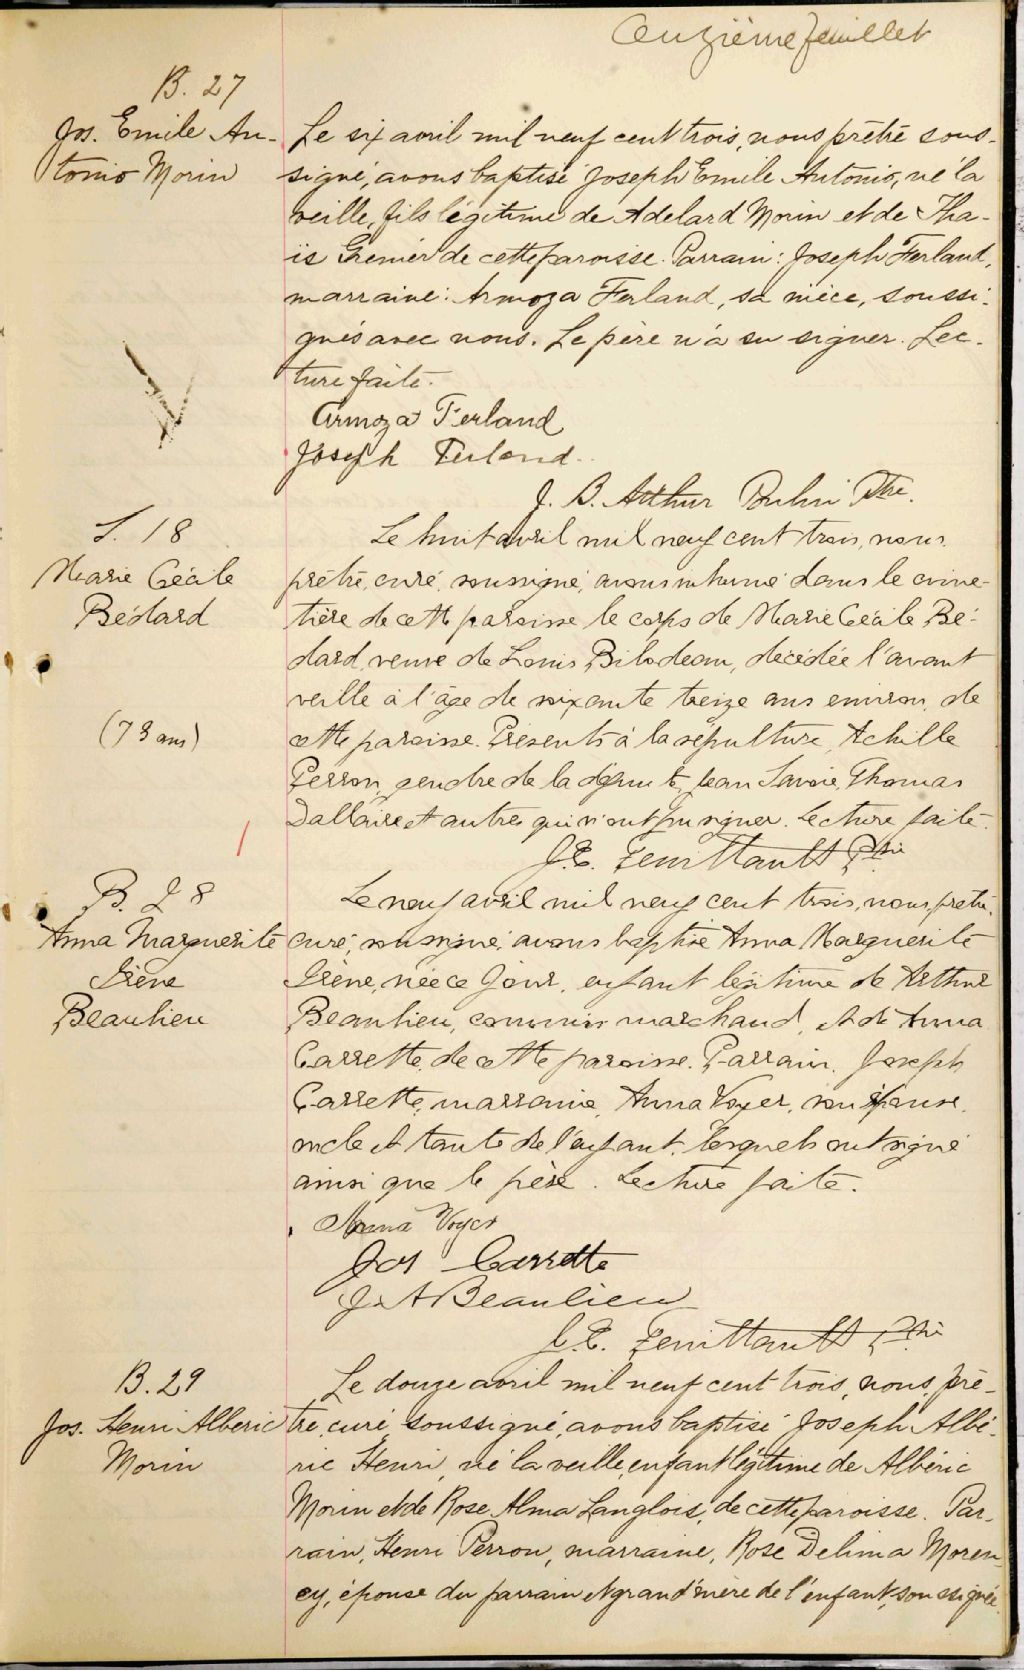 Onzième feuillet
B. 27
Jos. Emile An-
tonio Morin
Le six avril mil neuf cent trois, nous prêtre sous-
signé, avons baptisé Joseph Emile Antonio, né la
veille, fils légitime de Adelard Morin et de Tha-
is Grenier de cette paroisse. Parrain: Joseph Ferland,
marraine: Armoza Ferland, sa nièce, soussi-
gnés avec nous. Le père n'a su signer. Lec-
ture faite.
Armoza Ferland
Joseph Ferland
J. B. Arthur Poulin Ptre.
S. 18
Marie Cécile
Bédard
(73 ans)
Le huit avril mil neuf cent trois, nous
prêtre, curé, soussigné, avons inhumé dans le cime-
tière de cette paroisse le corps de Marie Cécile Bé-
dard, veuve de Louis Bilodeau, décédée l'avant
veille à l'âge de soixante treize ans environ, de
cette paroisse. Présents à la sépulture, Achille
Perron, gendre de la défunte, Jean Savoie, Thomas
Dallaire et autres qui n'ont pu signer. Lecture faite.
J. E. Ptre
B. 28
Anna Marguerite
Irène
Beaulieu
Le neuf avril mil neuf cent trois, nous, prêtre,
curé, soussigné, avons baptisé Anna Marguerite
Irène, née ce jour, enfant légitime de Arthur
Beaulieu, commis marchand, et de Anna
Carrette, de cette paroisse. Parrain, Joseph
Carrette, marraine, Anna Voyer, son épouse,
oncle et tante de l'enfant, lesquels ont signé
ainsi que le père. Lecture faite.
Anna Voyer
Jos Carrette
J. A Beaulieu
J. E. Ptre
B. 29
Jos. Henri Alberic
Morin
Le douze avril mil neuf cent trois, nous, prê-
tre, curé soussigné, avons baptisé Joseph Albé-
ric Henri, né la veille, enfant légitime de Albéric
Morin et de Rose Alma Langlois, de cette paroisse. Par-
rain, Henri Perron, marraine, Rose Delima Moren-
cy, épouse du parrain et grand'mère de l'enfant, soussignée